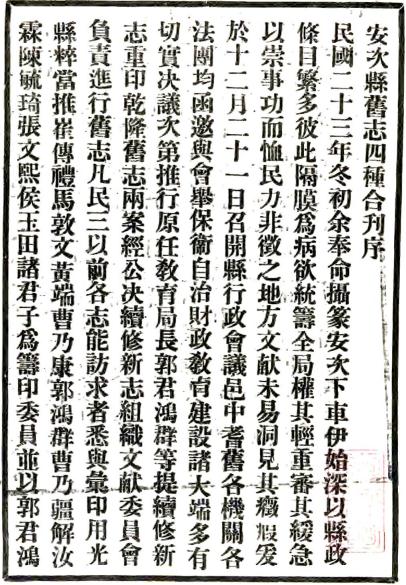 安次縣舊志四種合刊序
民國二十三年冬初余奉命攝篆安次下車伊始深以縣政
條目繁多彼此隔膜爲病欲統籌全局權其輕重審其緩急
以崇事功而恤民力非徵之地方文獻未易洞見其癥瑕爰
於十二月二十一日召開縣行政會議邑中耆舊各機關各
法團均函邀與會舉保衛自治財政教育建設諸大端多有
切實决議次第推行原任教育局長郭君鴻群等提續修新
志重印乾隆舊志兩案經公决續修新志組織文獻委員會
負責進行舊志凡民三以前各志能訪求者悉與彙印用光
縣粹當推崔傳禮馬敦文黃端曹乃康郭鴻群曹乃疆解汝
霖陳毓琦張文熙侯玉田諸君子爲籌印委員並以郭君鴻